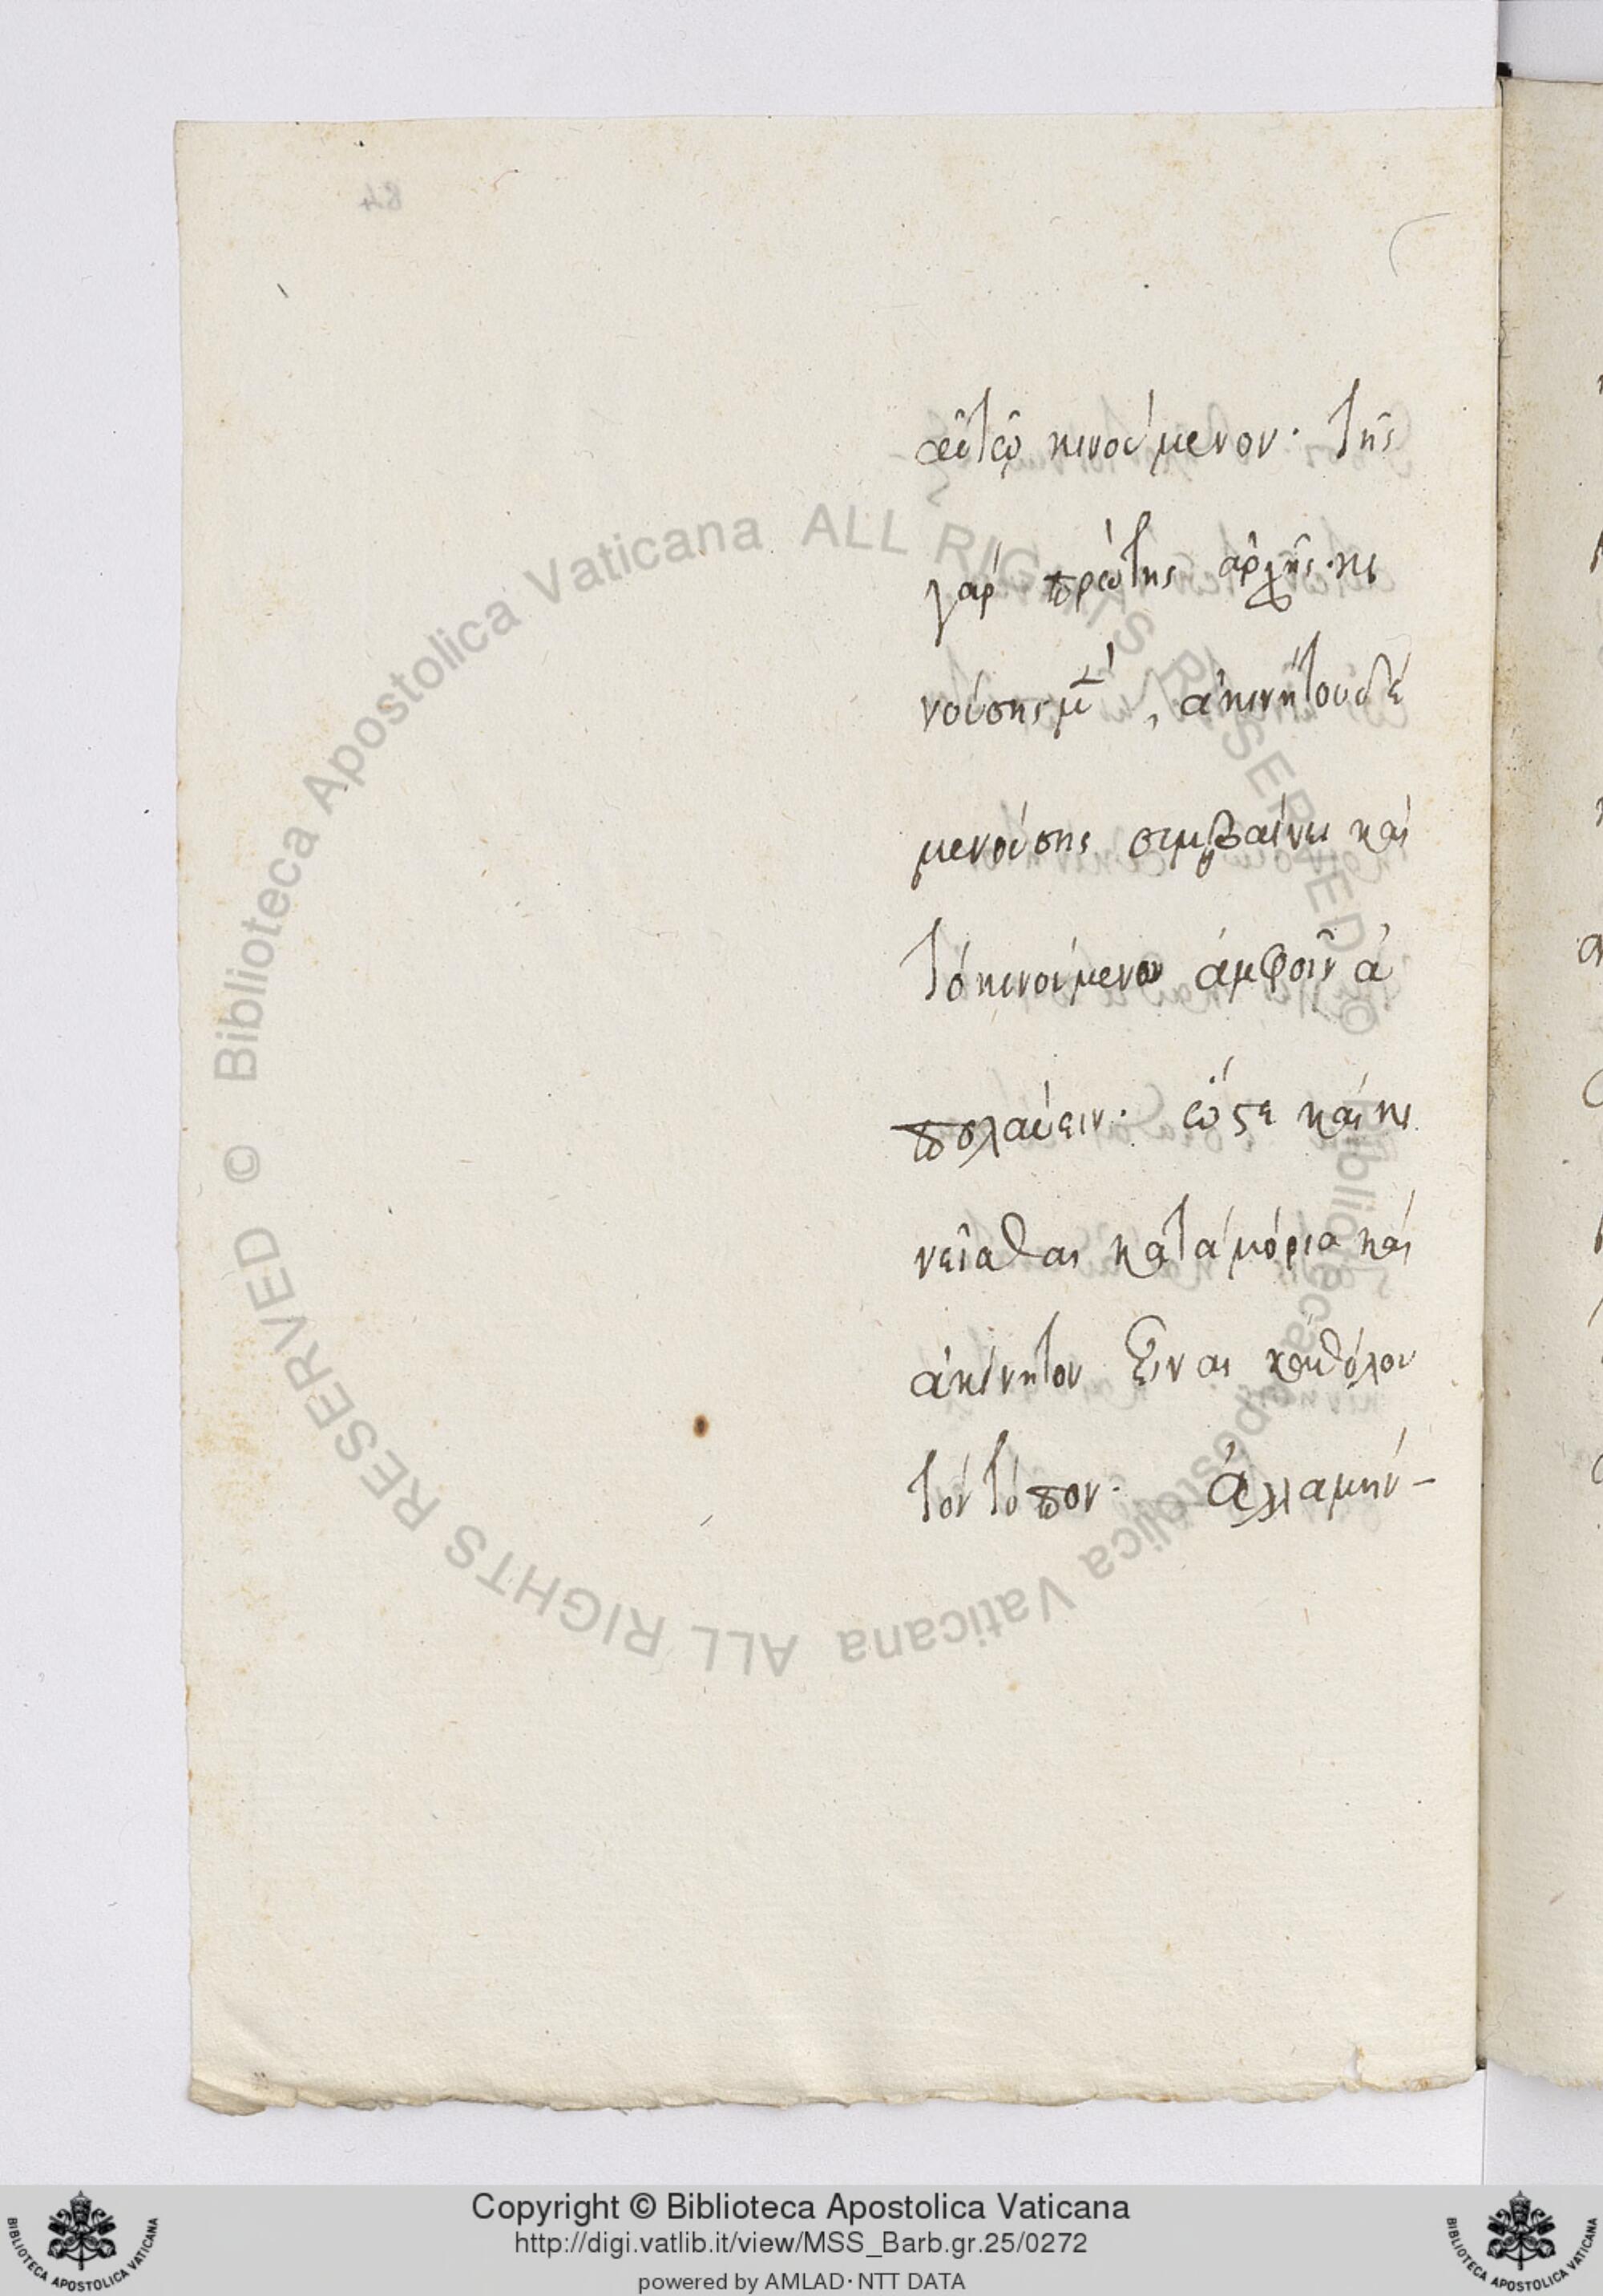 αὐτῷ κινούμενον· τῆς
γὰρ πρώτης ἀρχῆς· κι
νούσης μ̀, ἀκινήτου δὲ
μενούσης συμβαίνει καὶ
τὸ κινούμενον ἀμφοῖν ἀ
πολαύειν· ὥϛε καὶ κι
νεῖσθαι κατὰ μόρια καὶ
ἀκίνητον εἶναι καθόλου
τὸν τόπον· ἀλλαμὴν -
84
Biblioteca Apostolica Vaticana ALL RIGHTS RESERVED ©
Biblioteca Apostolica Vaticana ALL RIGHTS RESERVED ©
Copyright © Biblioteca Apostolica Vaticana
http://digi.vatlib.it/view/MSS_Barb.gr.25/0272
powered by AMLAD·NTT DATA
BIBLIOTECA APOSTOLICA VATICANA
BIBLIOTECA APOSTOLICA VATICANA